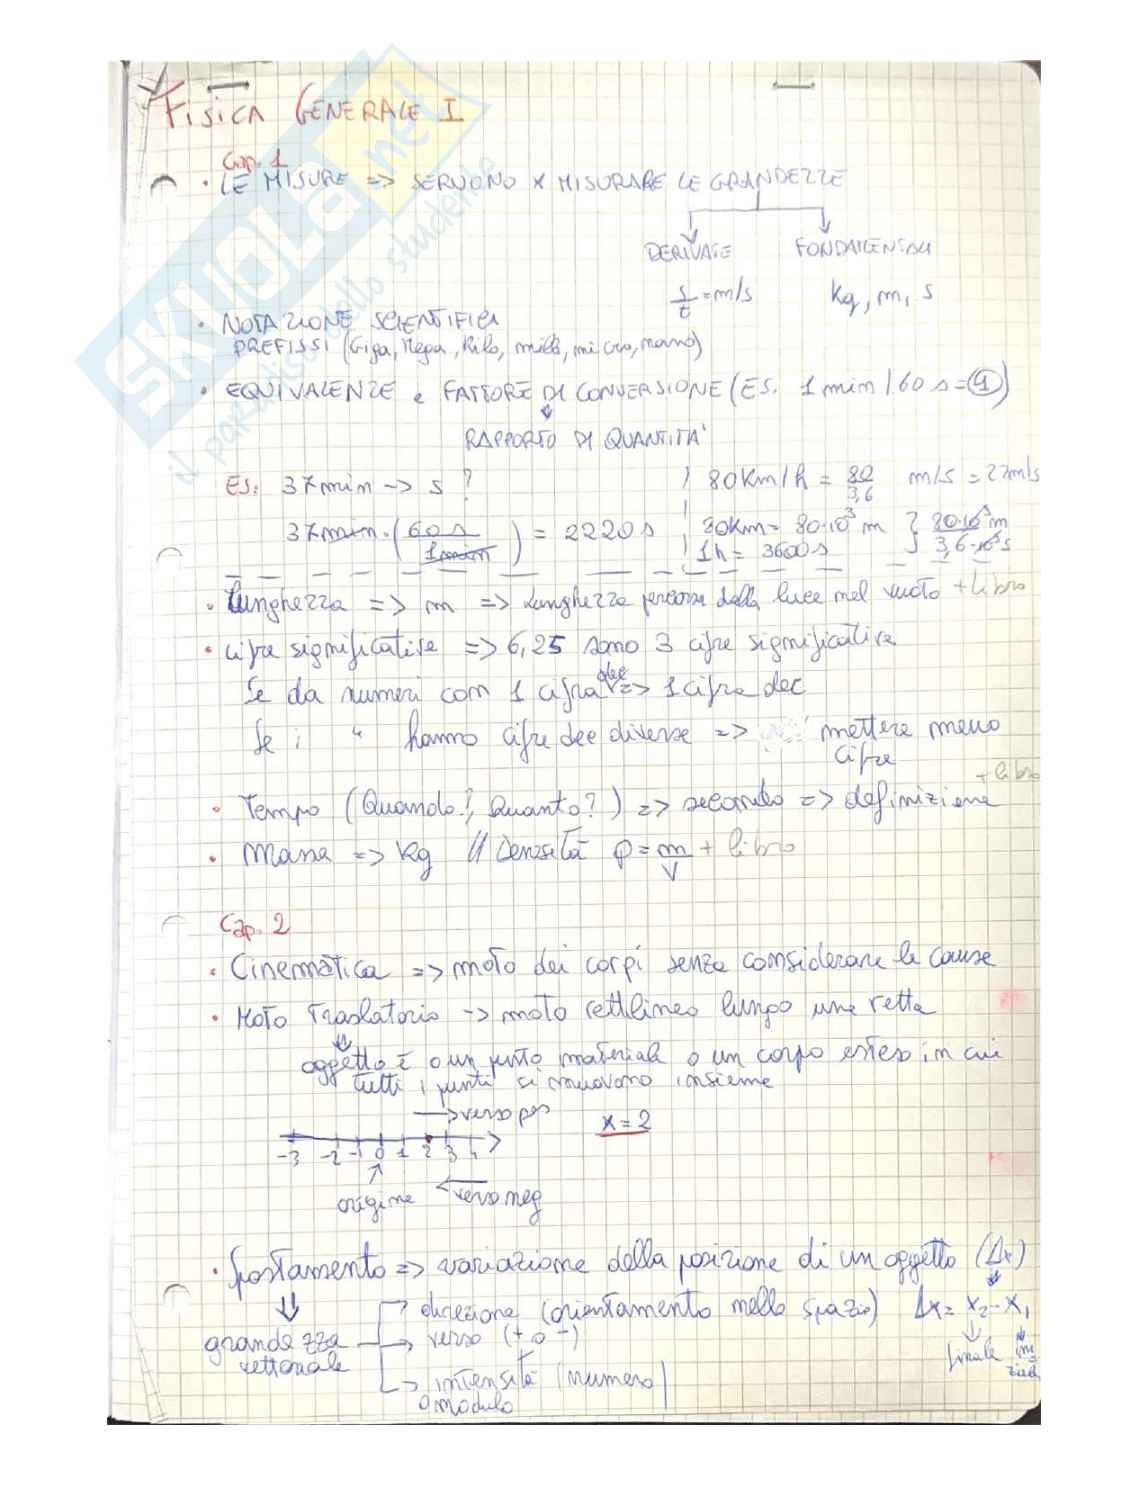 FISICA GENERALE I
Cap. 1
• LE MISURE => SERVONO x MISURARE LE GRANDEZZE
DERIVATE FONDAMENTALI
s/t = m/s kg, m, s
• NOTAZIONE SCIENTIFICA
PREFISSI (Giga, Mega, Kilo, milli, micro, nano)
• EQUIVALENZE e FATTORE DI CONVERSIONE (ES. 1 min / 60 s = 1)
RAPPORTO DI QUANTITA'
ES: 37 min -> s ? 80 Km/h = 80/3,6 m/s = 22 m/s
37 min · (60 s / 1 min) = 2220 s 80 Km = 80·10³ m } 80·10³ m
1 h = 3600 s 3,6·10³ s
• Lunghezza => m => Lunghezza percorsa dalla luce nel vuoto + libro
• cifre significative => 6,25 sono 3 cifre significative
Se da numeri con 1 cifra dec => 1 cifra dec
Se i " hanno cifre dec diverse => mettere meno
cifre
+ libro
• Tempo (Quando?, Quanto?) => secondo => definizione
• Massa => Kg // Densità ρ = m/V + libro
Cap. 2
• Cinematica => moto dei corpi senza considerare le cause
• Moto Traslatorio -> moto rettilineo lungo una retta
oggetto è o un punto materiale o un corpo esteso in cui
tutti i punti si muovono insieme
verso pos x = 2
-3 -2 -1 0 1 2 3 4
origine verso neg
• Spostamento => variazione della posizione di un oggetto (Δx)
direzione (orientamento nello spazio) Δx = x₂ - x₁
grandezza verso (+ o -)
vettoriale finale iniziale
intensità (numero)
o modulo
SKUOLA.net
il paradiso dello studente